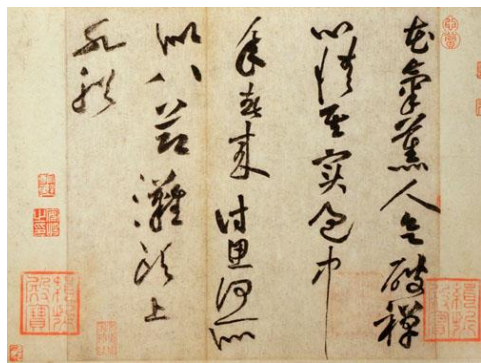 花氣薰人欲破禪
心情其實過中
年春來詩思何所
似八節灘頭上
水船
緝熙
殿寶